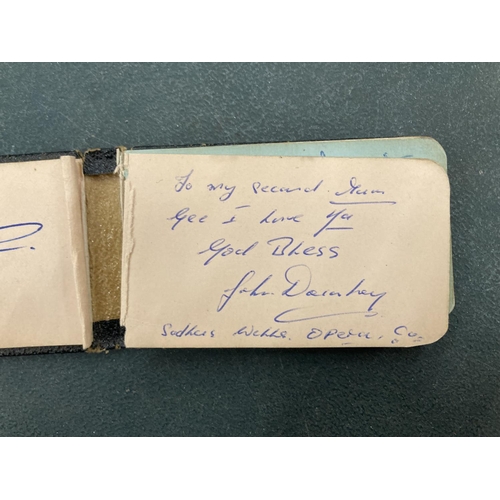 To my second Mum
Gee I Love Ya
God Bless
John
Sadlers Wells. Opera. Co.